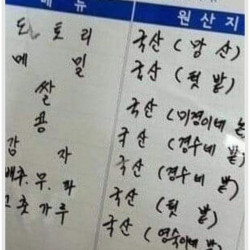 메 뉴 원 산 지
도 토 리 국산 (앞 산)
메 밀 국산 (텃 밭)
쌀 국산 (미경이네 논
콩 국산 (경수네 밭)
감 자 국산 (경수네 밭)
배추.무.파 국산 (텃 밭)
고춧가루 국산 (영숙이네 밭)